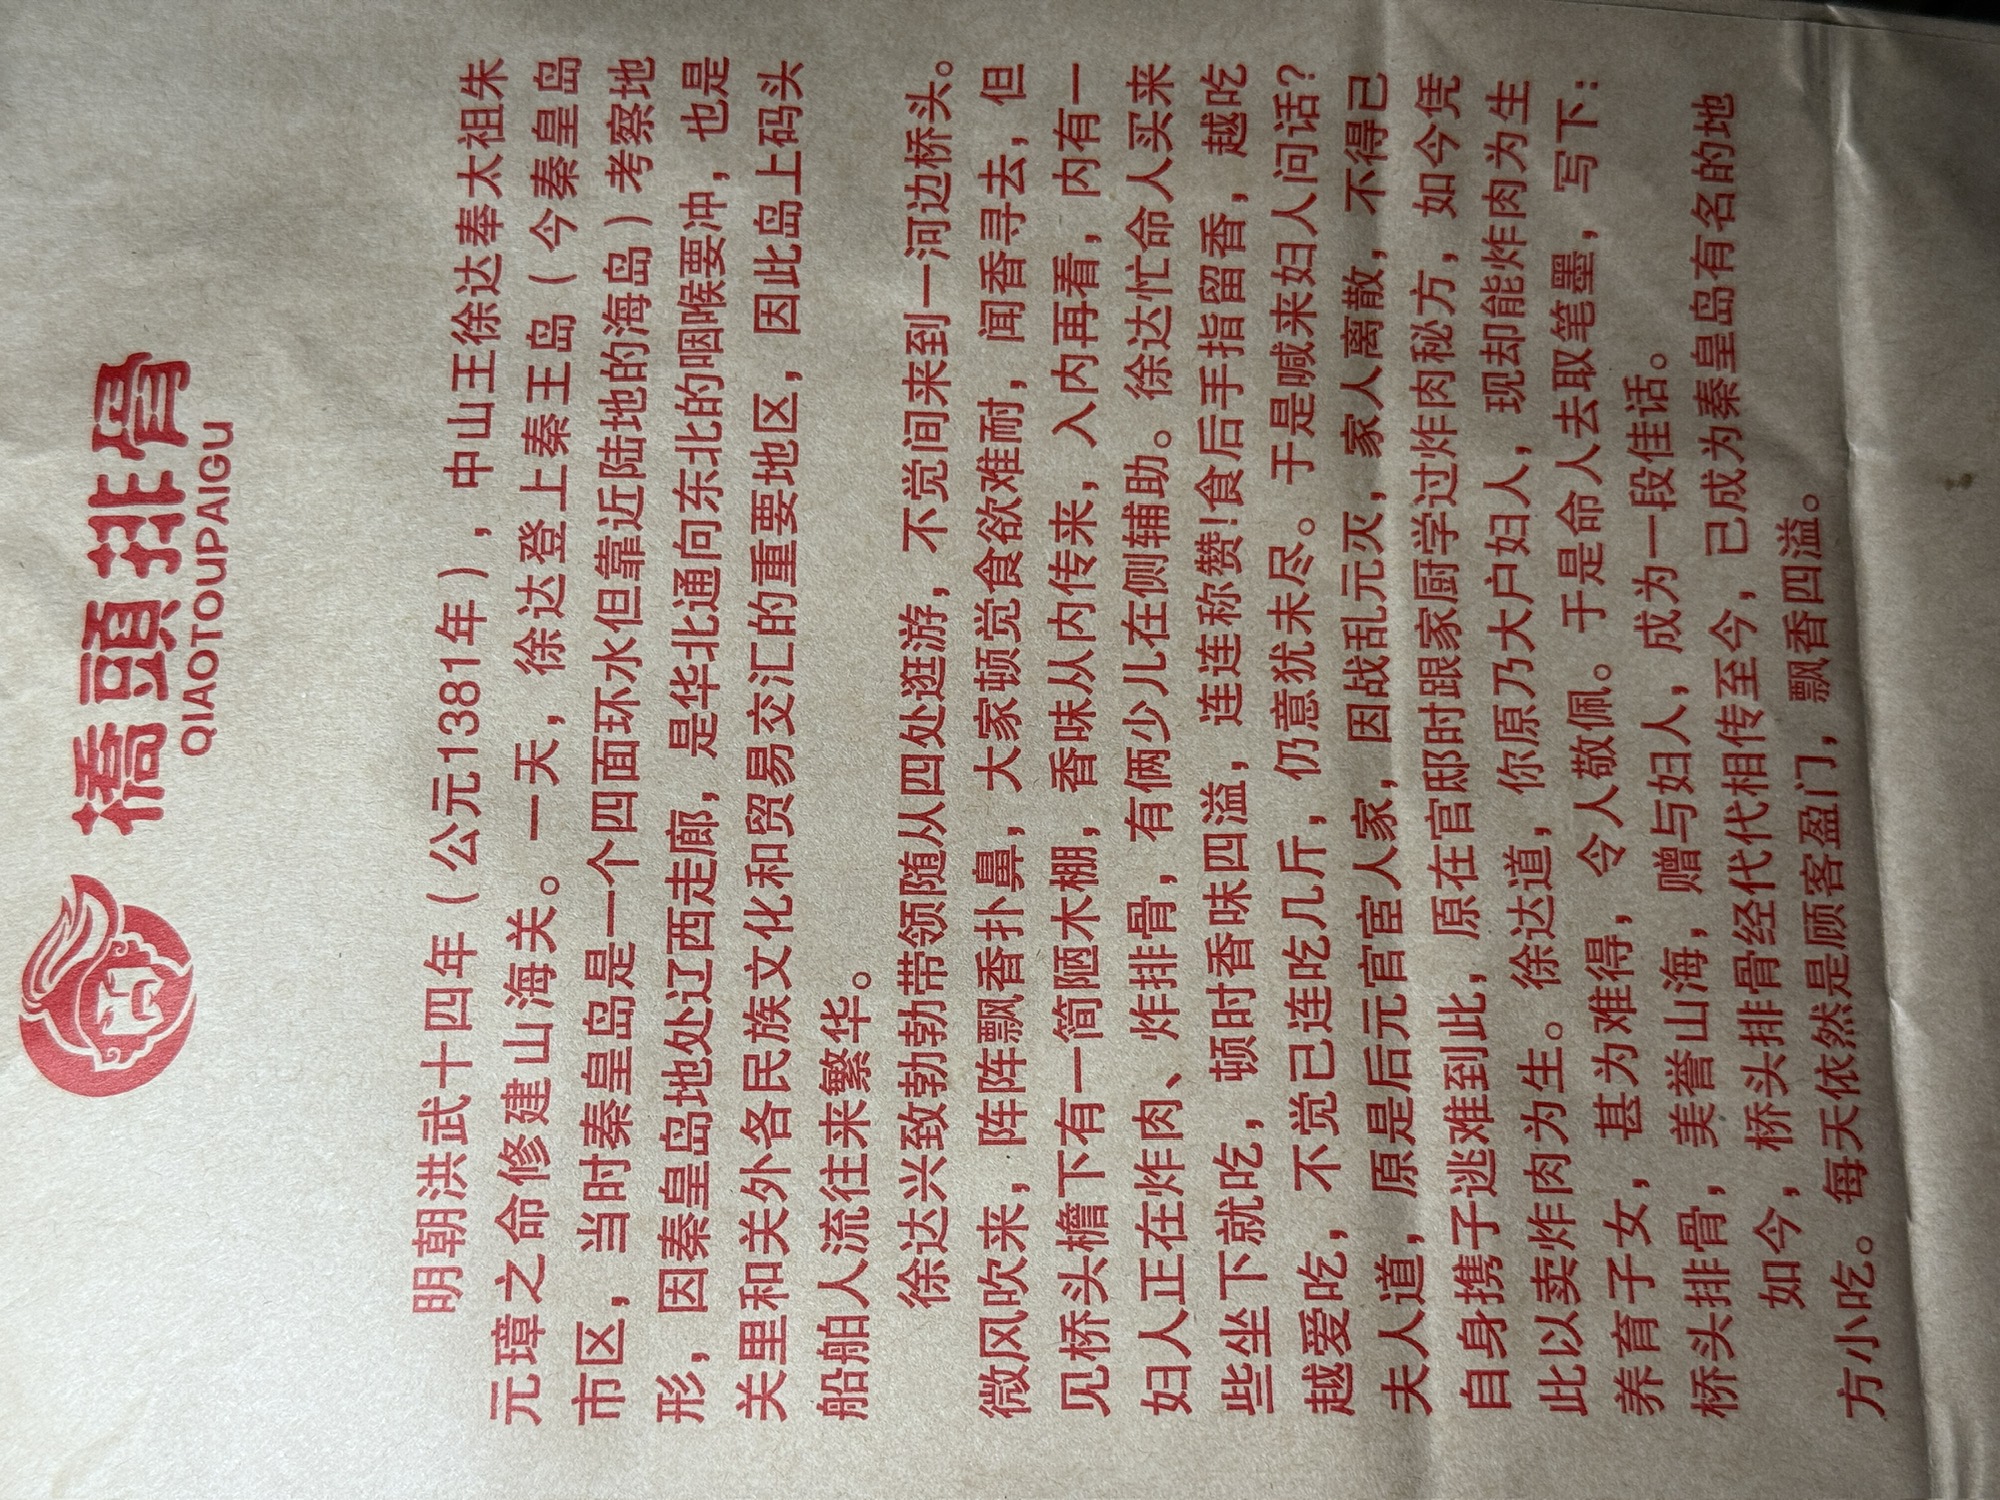 橋頭排骨
QIAOTOUPAIGU
明朝洪武十四年（公元1381年），中山王徐达奉太祖朱
元璋之命修建山海关。一天，徐达登上秦王岛（今秦皇岛
市区，当时秦皇岛是一个四面环水但靠近陆地的海岛）考察地
形，因秦皇岛地处辽西走廊，是华北通向东北的咽喉要冲，也是
关里和关外各民族文化和贸易交汇的重要地区，因此岛上码头
船舶人流往来繁华。
徐达兴致勃勃带领随从四处逛游，不觉间来到一河边桥头。
微风吹来，阵阵飘香扑鼻，大家顿觉食欲难耐，闻香寻去，但
见桥头檐下有一简陋木棚，香味从内传来，入内再看，内有一
妇人正在炸肉、炸排骨，有俩少儿在侧辅助。徐达忙命人买来
些坐下就吃，顿时香味四溢，连连称赞!食后手指留香，越吃
越爱吃，不觉已连吃几斤，仍意犹未尽。于是喊来妇人问话?
夫人道，原是后元官宦人家，因战乱元灭，家人离散，不得已
自身携子逃难到此，原在官邸时跟家厨学过炸肉秘方，如今凭
此以卖炸肉为生。徐达道，你原乃大户妇人，现却能炸肉为生
养育子女，甚为难得，令人敬佩。于是命人去取笔墨，写下：
桥头排骨，美誉山海，赠与妇人，成为一段佳话。
如今，桥头排骨经代代相传至今，已成为秦皇岛有名的地
方小吃。每天依然是顾客盈门，飘香四溢。